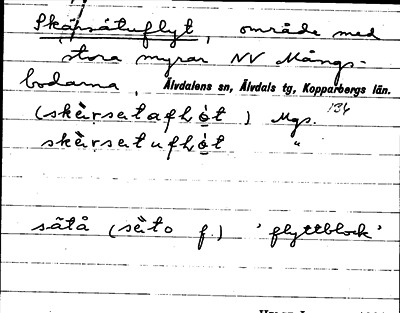 Skärsåtuflyt, område med
stora myrar NV Mångs-
bodarna, Älvdalens sn, Älvdals tg, Kopparbergs län.
(skèrsetaflót) Mgs. 134
skèrsetuflót "
såtå (sèto f.) 'flyttblock'